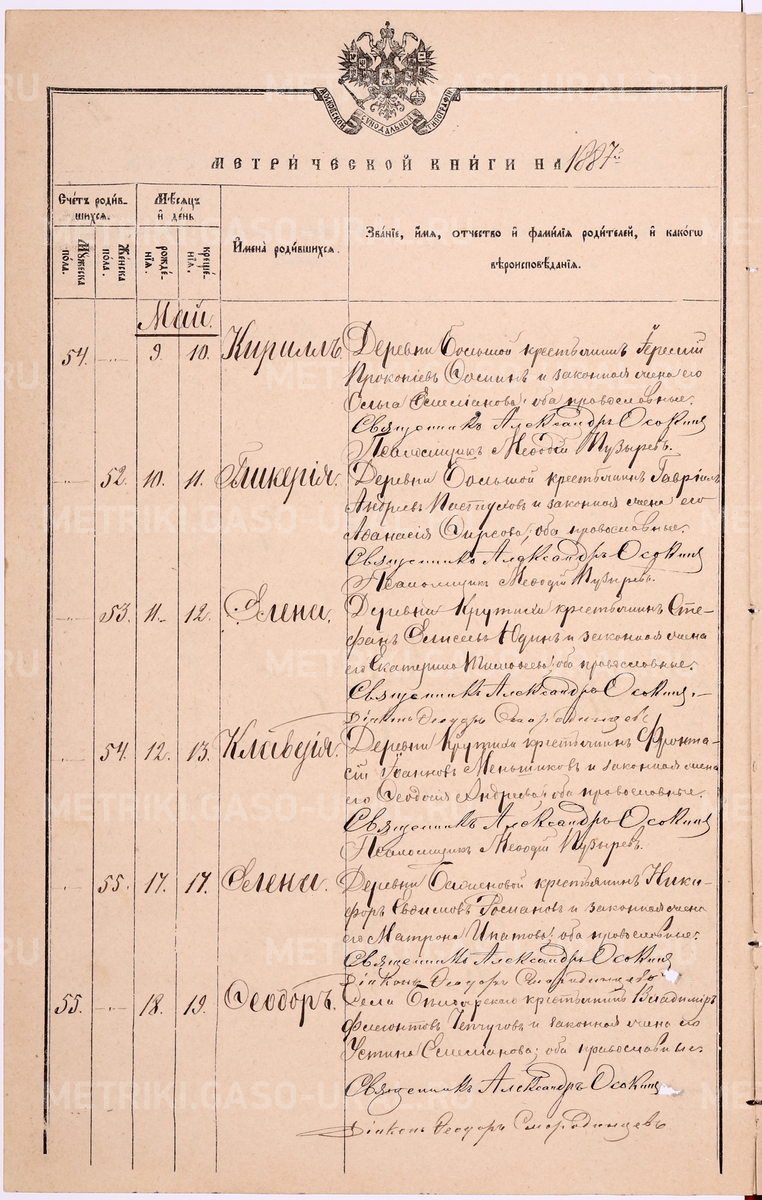 МОСКОВСКОЙ СѴНОДАЛЬНОЙ ТИПОГРАФІИ
МЕТРИ́ЧЕСКОЙ КНИ́ГИ НА 1887й
Сче́тъ роди́вшихся.
Мѣ́сяцъ и҆ де́нь
И҆мена̀ роди́вшихся.
Зва́нїе, и҆́мя, ѻ҆́тчество и҆ фами́лїя роди́телей, и҆ како́гѡ
вѣроисповѣ́данїя.
Мꙋ́жеска по́ла.
Же́нска по́ла.
рожде́нїѧ.
креще́нїѧ.
Май.
54. 9. 10. Кириллъ. Деревни Большой крестьянинъ
Прокопіевъ и законная жена его
Ольга Емеліанова; оба православные.
Священникъ Александръ Осокинъ
Псаломщикъ Меѳодій Пузыревъ.
52. 10. 11. Гликерія. Деревни Большой крестьянинъ Гавріилъ
Андреевъ Пастуховъ и законная жена его
Аѳанасія; оба православные.
Священникъ Александръ Осокинъ
Псаломщикъ Меѳодій Пузыревъ.
53. 11. 12. Елена. Деревни Крутихи крестьянинъ Сте-
фанъ Елисеевъ Юдинъ и законная жена
его Екатерина; оба православные.
Священникъ Александръ Осокинъ.
Діаконъ Ѳеодоръ Смородинцевъ
54. 12. 13. Клавдія. Деревни Крутихи крестьянинъ
Іоанновъ Меньшиковъ и законная жена
его Ѳеодосія Андреева; оба православные.
Священникъ Александръ Осокинъ
Псаломщикъ Меѳодій Пузыревъ.
55. 17. 17. Елена. Деревни крестьянинъ Ники-
форъ Романовъ и законная жена
его Матрона Ипатова; оба православные.
Священникъ Александръ Осокинъ
Діаконъ Ѳеодоръ Смородинцевъ
55. 18. 19. Ѳеодоръ. Села крестьянинъ Владиміръ
Чепчуговъ и законная жена его
Устина Емеліанова; оба православные.
Священникъ Александръ Осокинъ
Діаконъ Ѳеодоръ Смородинцевъ
METRIKI.GASO-URAL.RU